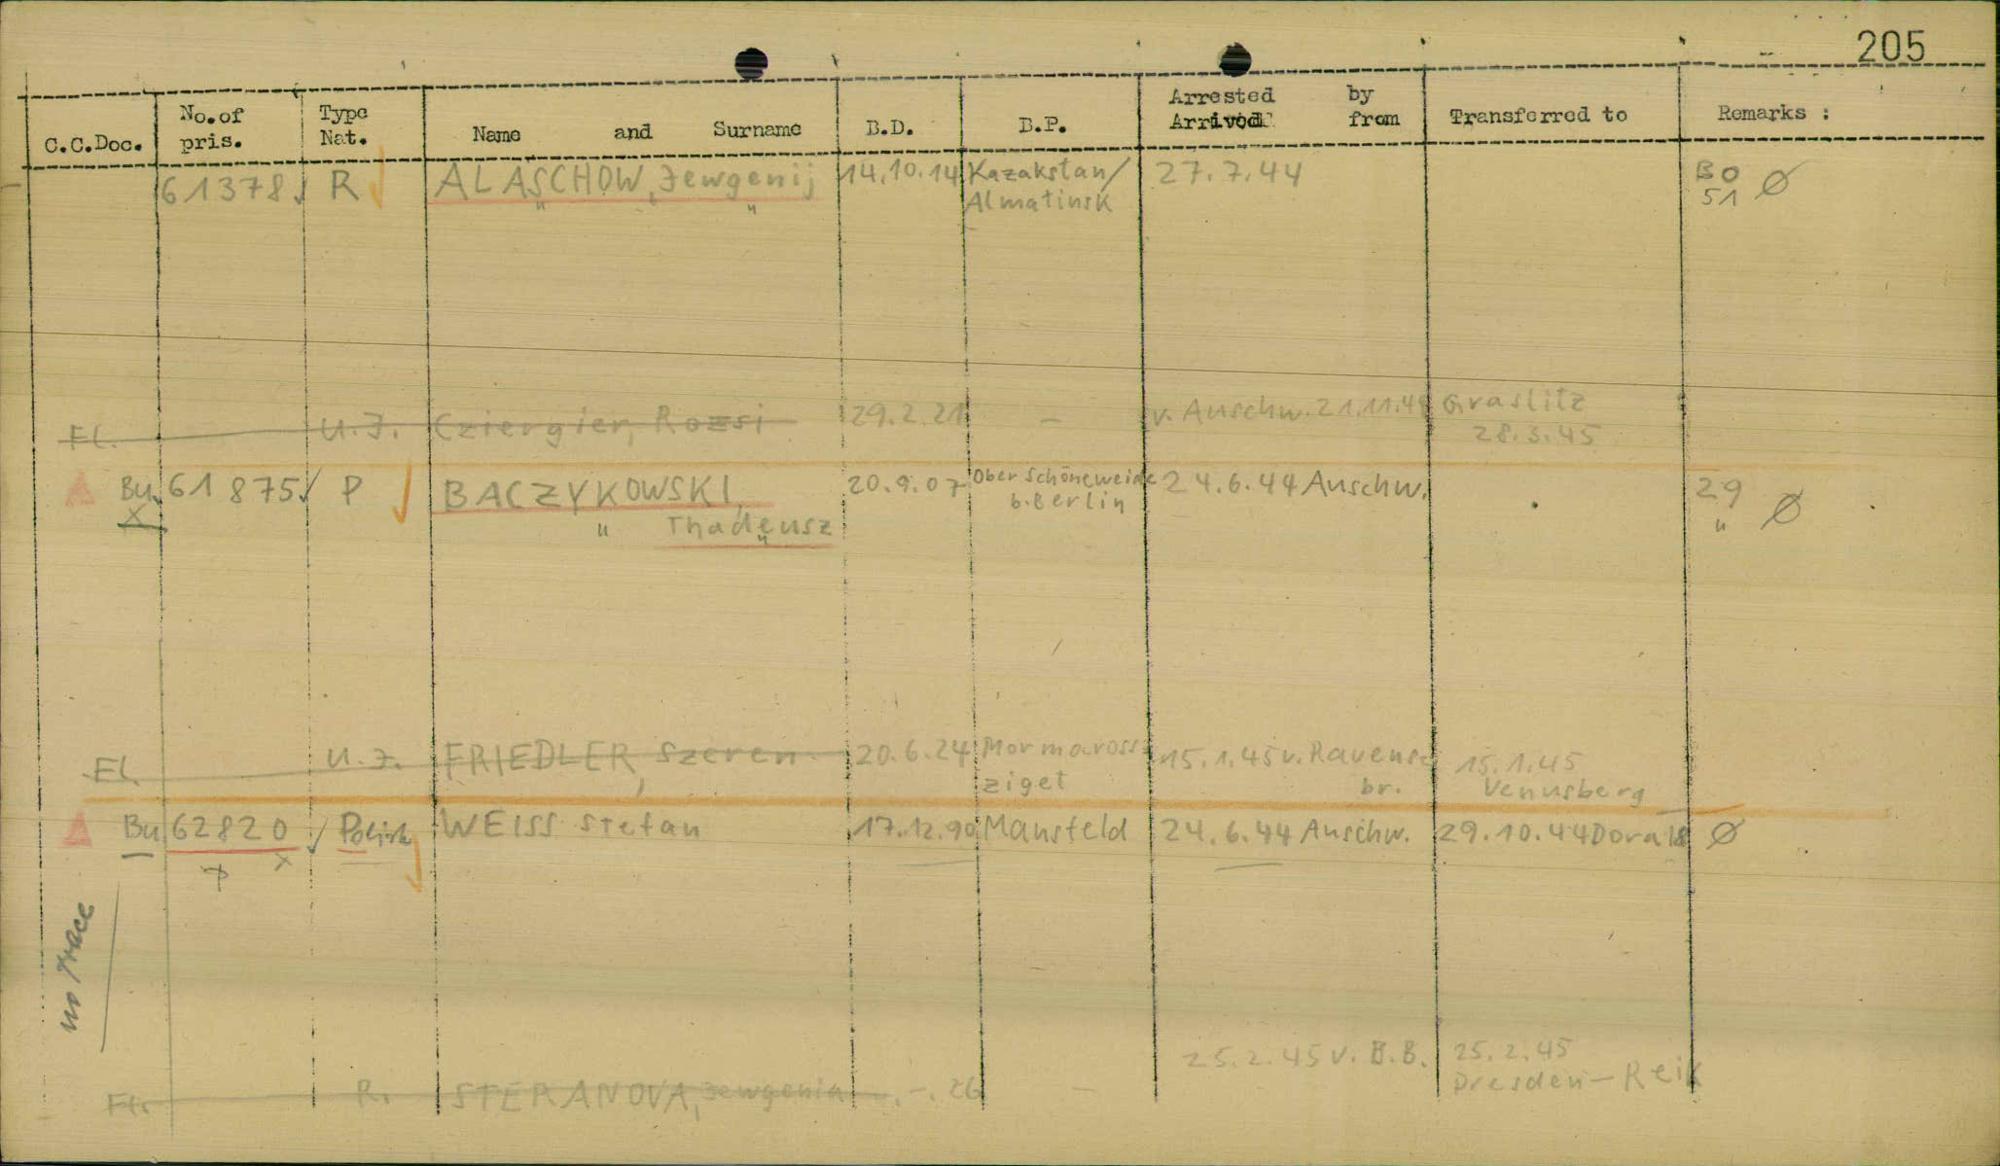 205
C.C.Doc. No.of pris. Type Nat. Name and Surname B.D. B.P. Arrested by Arrived from Transferred to Remarks :
61378 R ALASCHOW, Jewgenij 14.10.14 Kazakstan/ 27.7.44 BO Ø
Almatinsk 51
Fl. U.J. Cziergier, Rozsi 29.2.21 – v. Auschw. 21.11.44 Graslitz
28.3.45
Bu. 61875 P BACZYKOWSKI, 20.9.07 Ober Schöneweide 24.6.44 Auschw. 29 Ø
X " Thadeusz b. Berlin "
Fl. U.J. FRIEDLER, Szeren 20.6.24 Mormaross 15.1.45 v. Ravens 15.1.45
ziget br. Venusberg
Bu 62820 Polish WEISS Stefan 17.12.90 Mansfeld 24.6.44 Auschw. 29.10.44 Dora Ø
X
no trace
25.2.45 v. B.B. 25.2.45
Fl. R. STEPANOVA, Jewgenia -.-.26 – Dresden-Reik